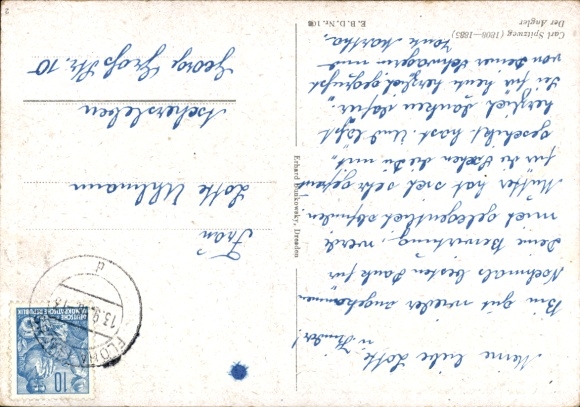 Meine liebe Lotte
u. Kinder!
Bin gut wieder angekommen
Nochmals besten Dank für
Deine Bewirtung, werde
mich gelegentlich abfinden
Mutter hat sich sehr gefreut
für die Sachen die Du mit
geschickt hast. Und läßt
herzlich danken dafür.
Sei für heute herzlich gegrüßt
von Deiner Schwägerin und
Tante Martha.
Carl Spitzweg (1808—1885)
Der Angler
E. B. D. Nr. 108
Erhard Bunkowsky, Dresden
Frau
Lotte Uhlmann
Aschersleben
Georg Groß Str. 10
FLÖHA
13.9.
d
DEUTSCHE
DEMOKRATISCHE REPUBLIK
10